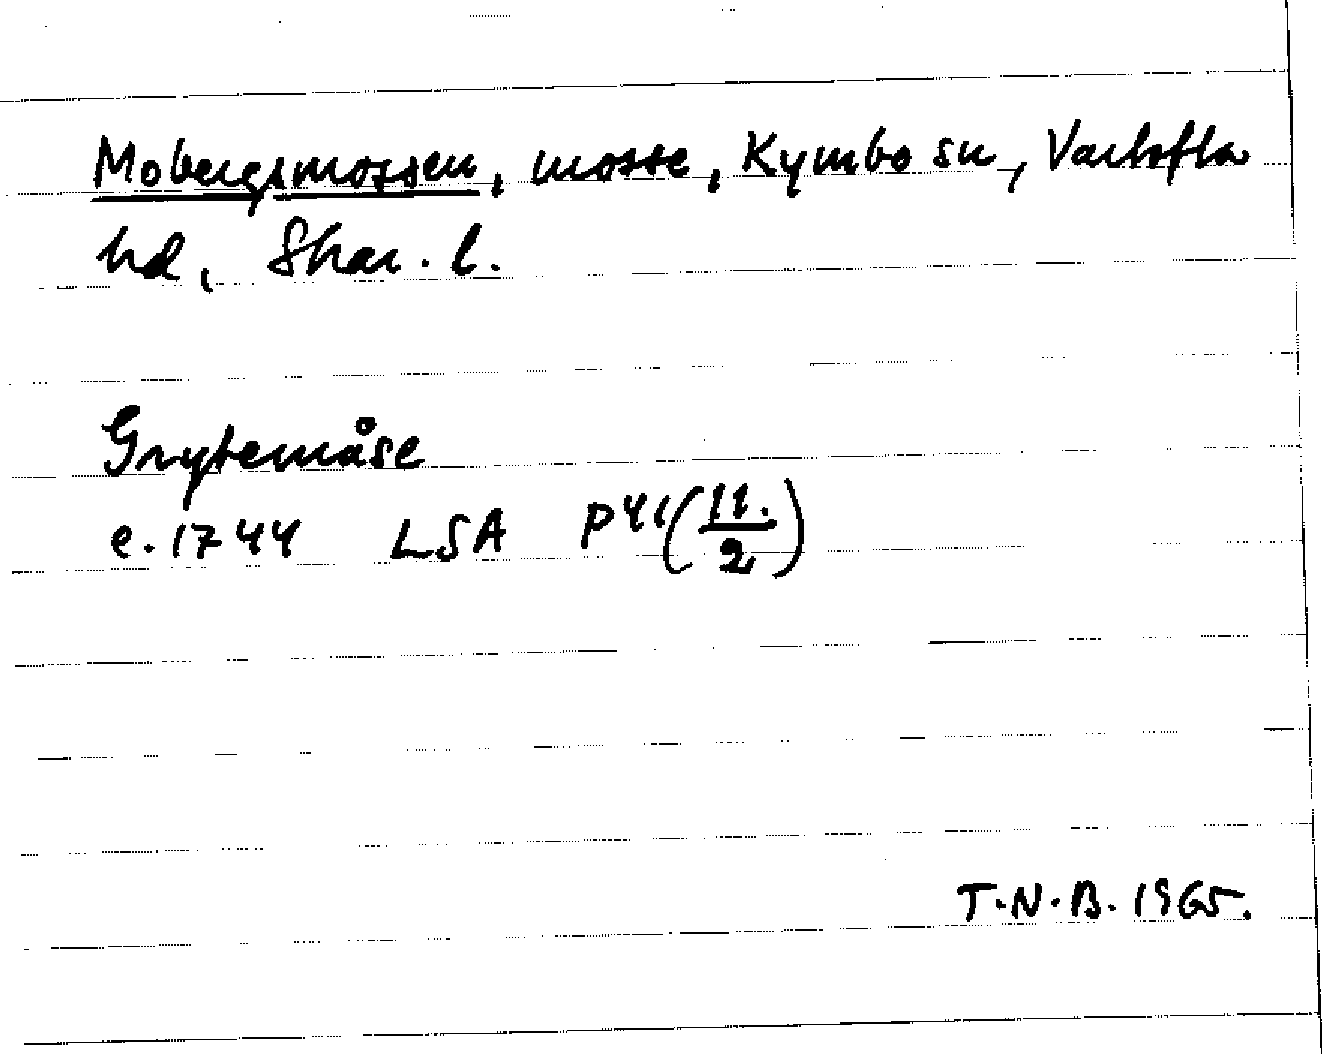 Mobergsmossen, mosse, Kymbo sn, Vartofta
hd, Skar. l.
Grytemåse
e. 1744 LSA P41 (11./2)
T.N.B. 1965.